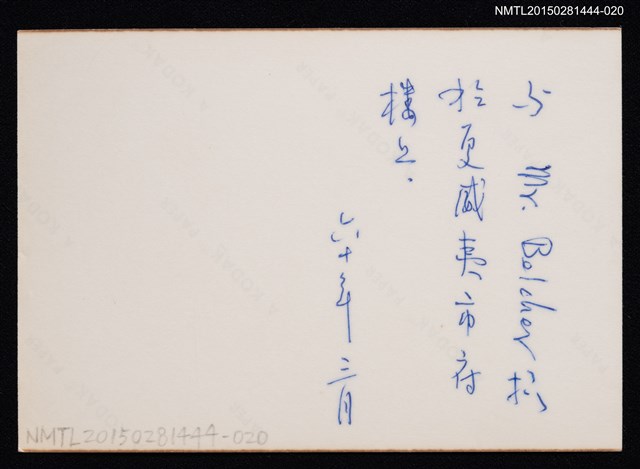 NMTL20150281444-020
与 Mr. Belcher 摄
於夏威夷市府
楼上.
六十年三月
NMTL20150281444-020